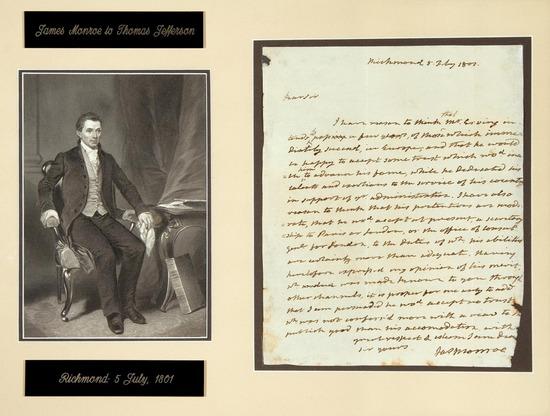 James Monroe to Thomas Jefferson
Richmond 5 July 1801.
Dear Sir
I have reason to think that Mr. Erving in
a few years, of those which imme-
diately succeed, in Europe, and that he would
be happy to accept some trust which wod. ena-
ble him to advance his fame, while he dedicated his
talents and exertions to the service of his country
in support of yr. administration. I have also
reason to think that his pretentions are mod-
erate, that he wod. accept at present, a secretary
ship to Paris or London, or the office of consul
genl. for London, to the duties of wh. his abilities
are certainly more than adequate. Having
heretofore expressed my opinion of his merit,
wh. was made known to you through
other channels, it is proper for me only to add
that I am persuaded he wod. accept no trust
wh. was not confer'd more with a view to the
publick good than his accomodation. with
great respect & esteem I am dear
Sir yours
Jas Monroe
Richmond: 5 July, 1801